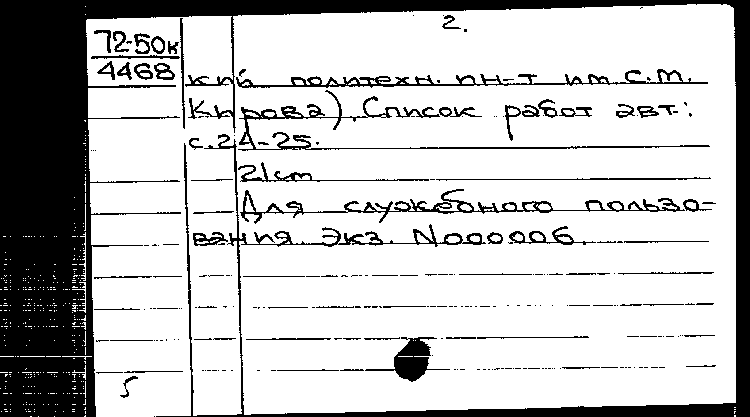 2.
72-50к
4468
кий политехн. ин-т им С.М.
Кирова). Список работ авт.:
с.24-25.
21cm
Для служебного пользо-
вания. Экз. N000006.
5